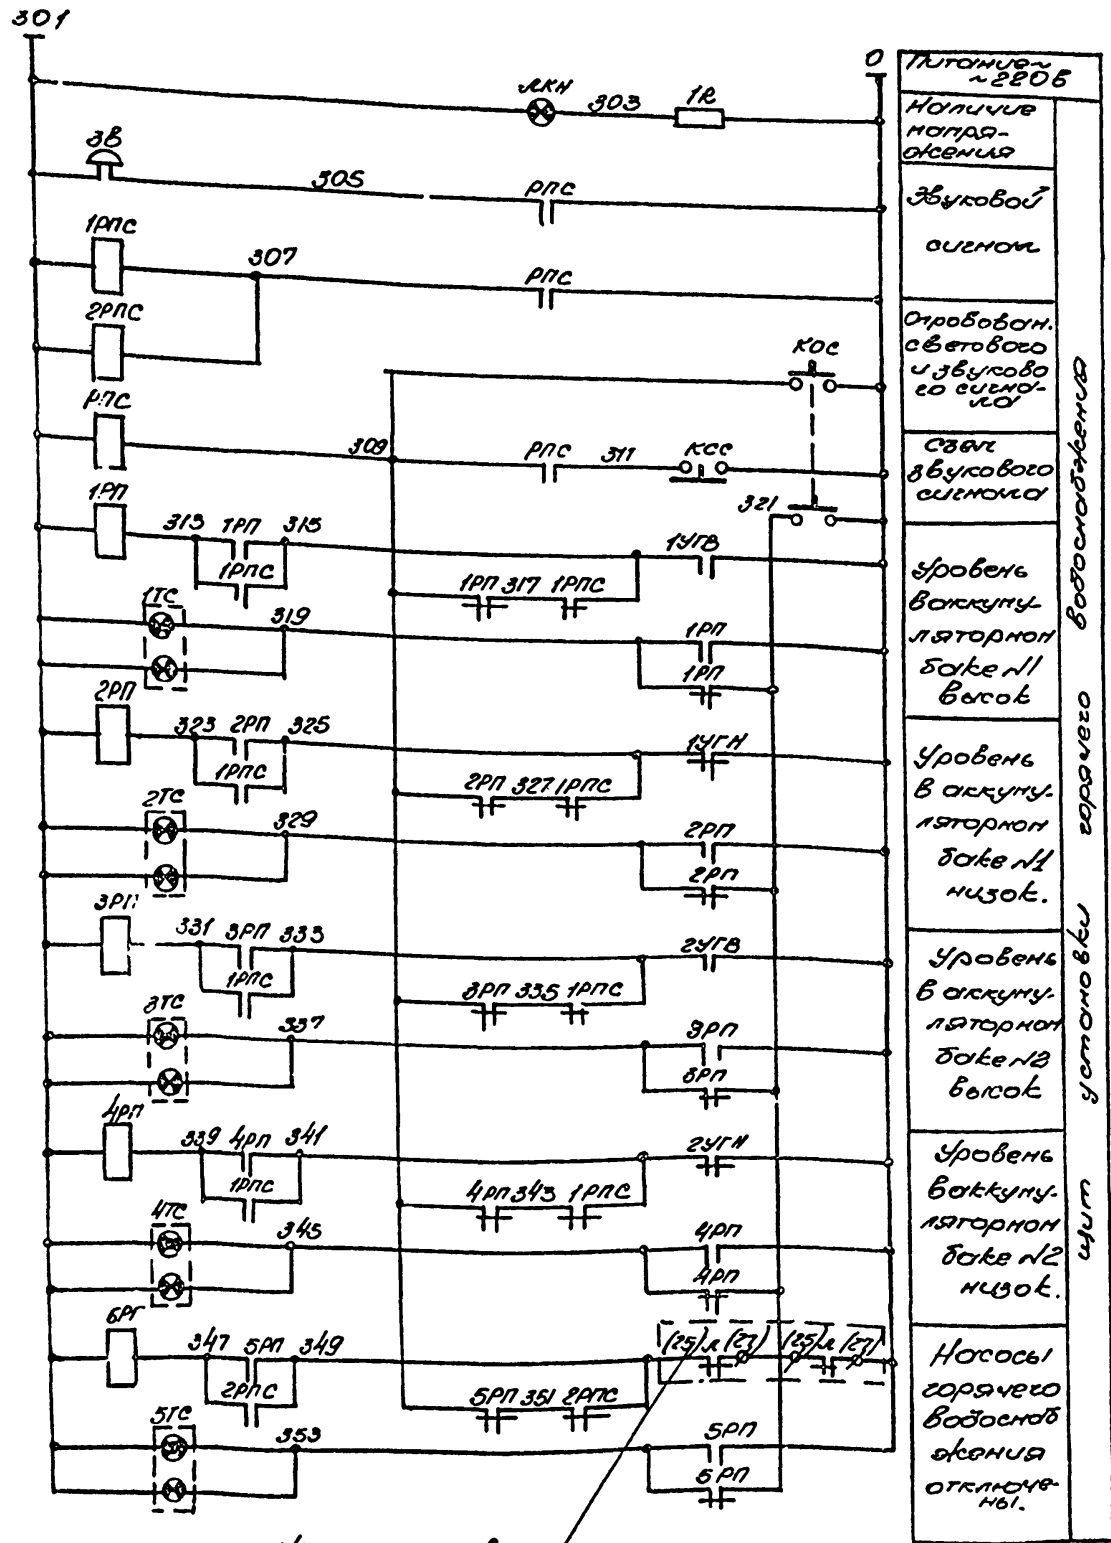 301
0
ЛКН
303
1R
ЗВ
305
РПС
1РПС
307
РПС
2РПС
КОС
РПС
309
РПС
311
КСС
321
1РП
313
1РП
315
1УГВ
1РПС
1РП
317
1РПС
1ТС
319
1РП
1РП
2РП
323
2РП
325
1УГН
1РПС
2РП
327
1РПС
2ТС
329
2РП
2РП
3РП
331
3РП
333
2УГВ
1РПС
3РП
335
1РПС
3ТС
337
3РП
3РП
4РП
339
4РП
341
2УГН
1РПС
4РП
343
1РПС
4ТС
345
4РП
4РП
347
5РП
349
(25)
л
(27)
(25)
л
(27)
2РПС
5РП
351
2РПС
5ТС
353
5РП
5РП
Питание~
~220В
Наличие
напря-
жения
Звуковой
сигнал
Опробован.
светового
и звуково
го сигна-
ла
Съем
звукового
сигнала
Уровень
в аккуму-
ляторном
баке N1
высок
Уровень
в аккуму-
ляторном
баке N1
низок.
Уровень
в аккуму-
ляторном
баке N2
высок
Уровень
в аккуму-
ляторном
баке N2
низок.
Насосы
горячего
водоснаб
жения
отключе-
ны.
Щит установки горячего водоснабжения